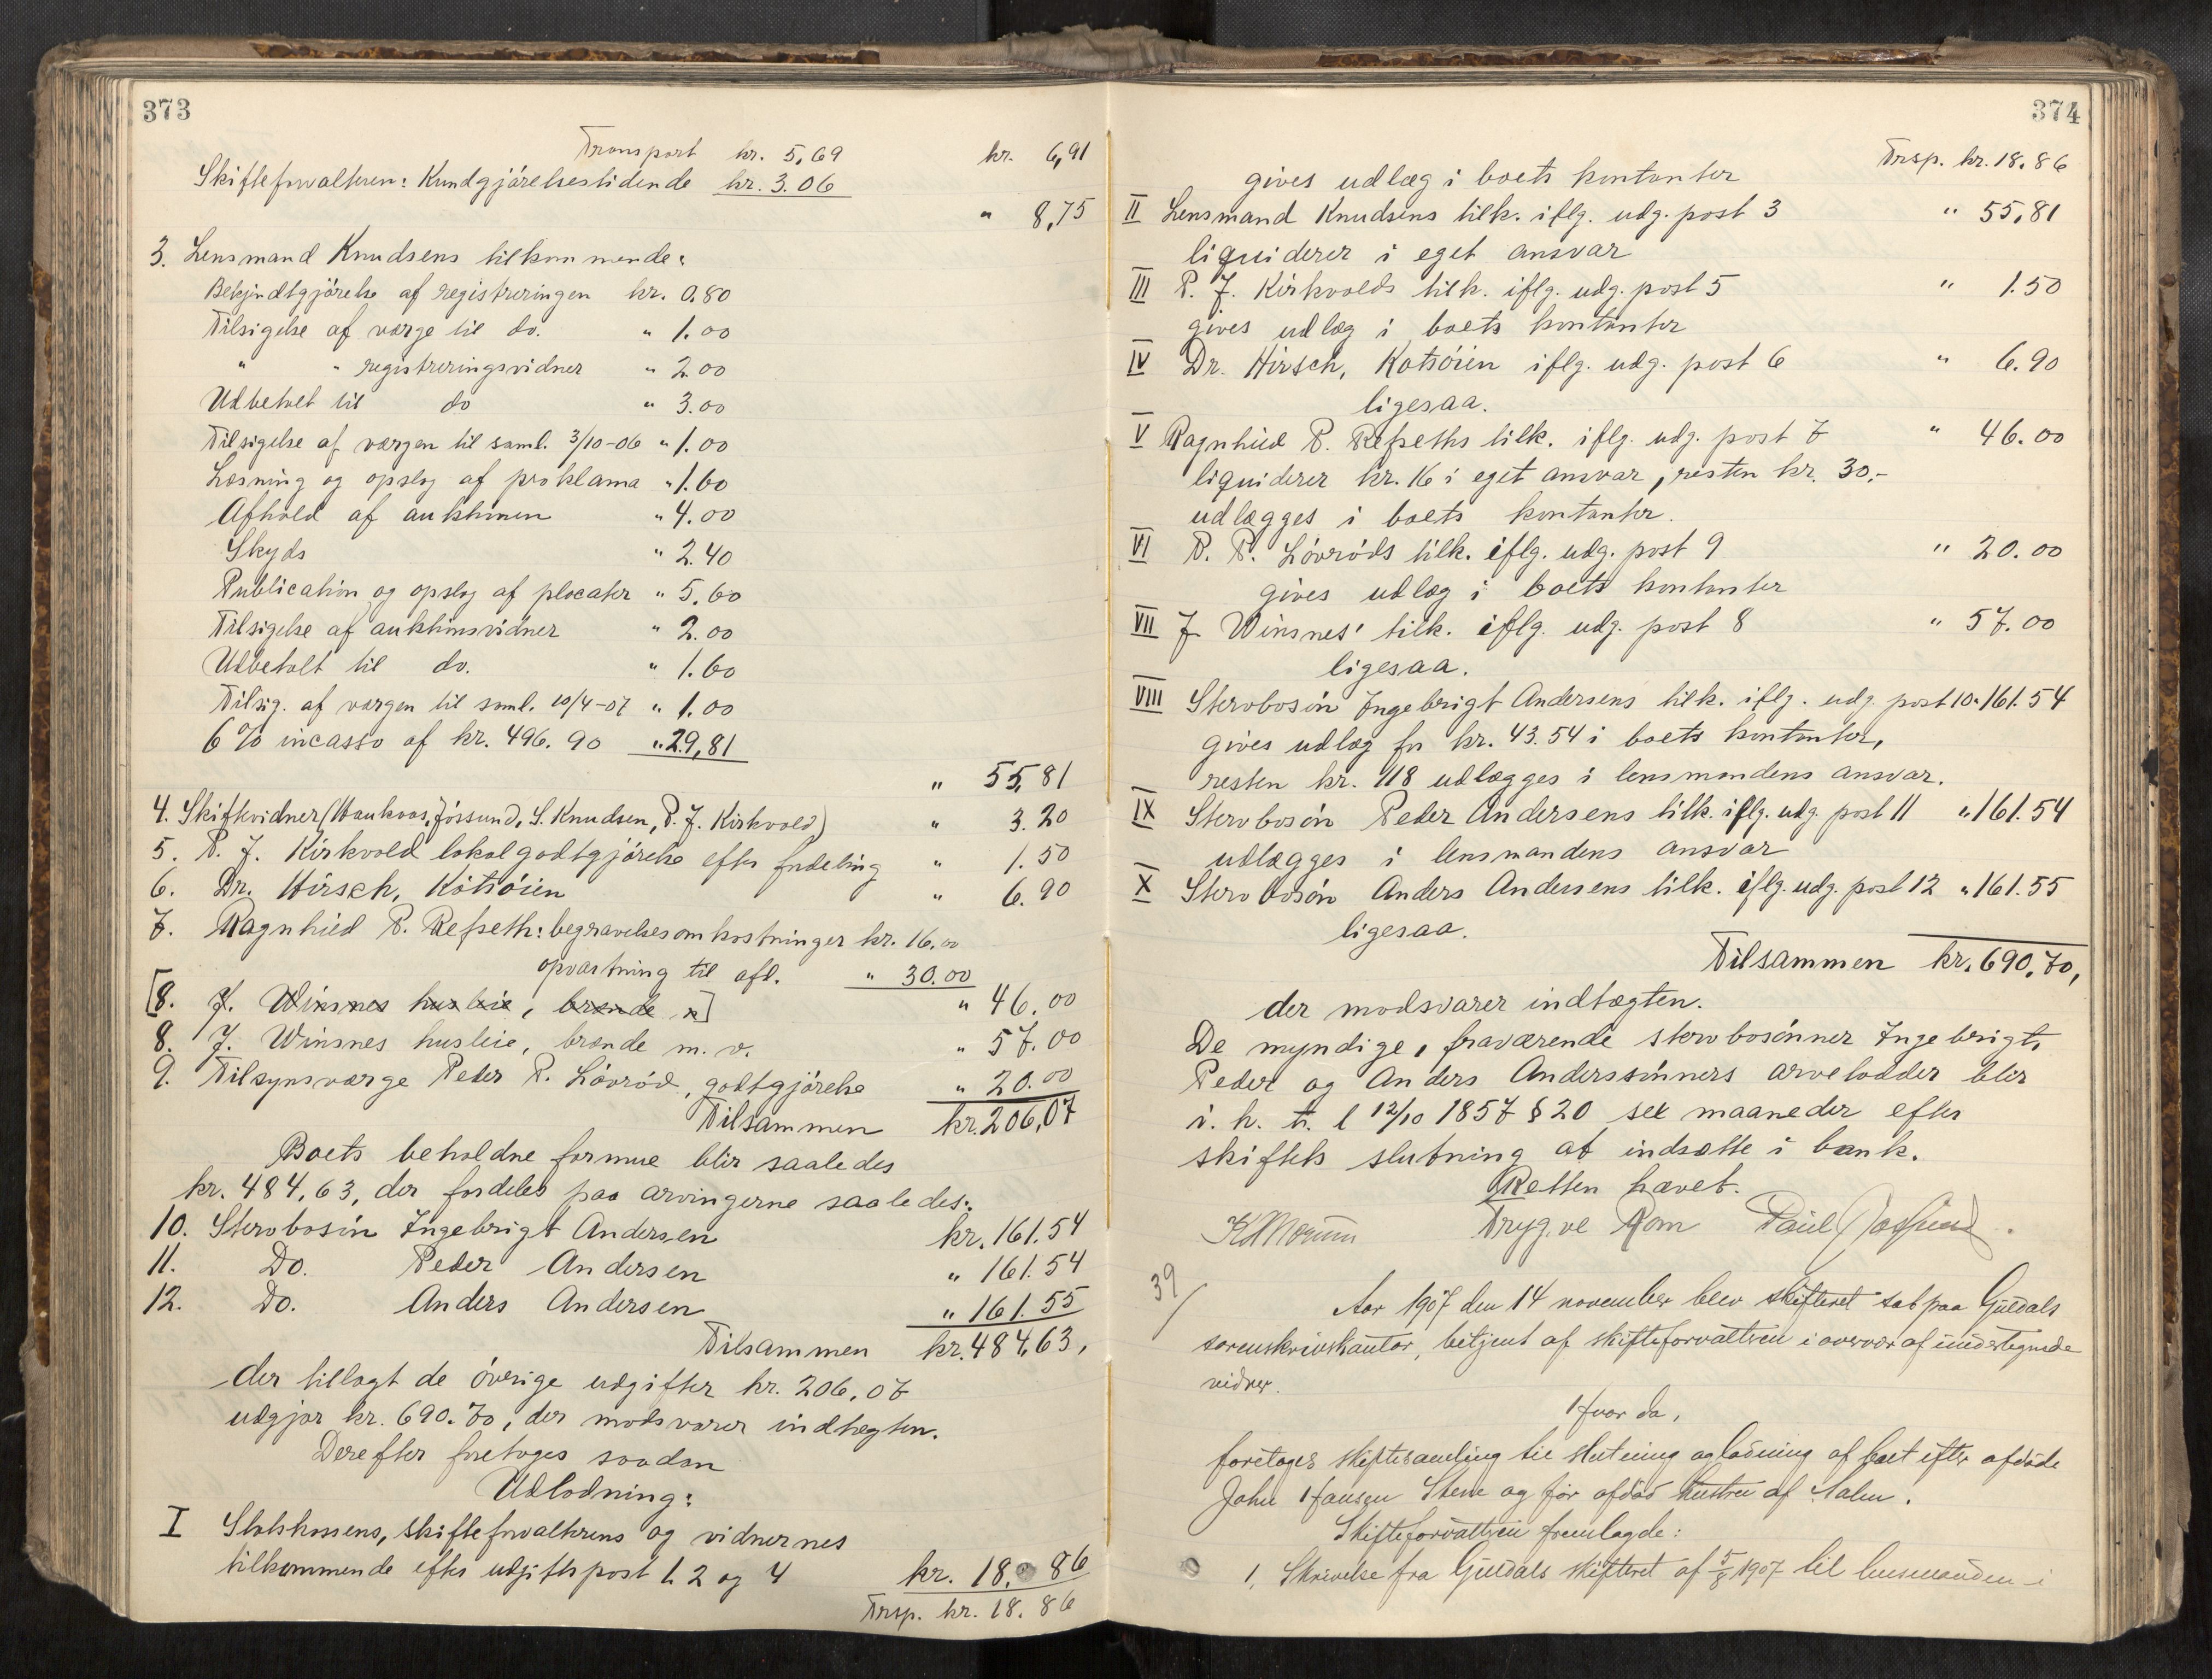 373
Transport kr. 5,69 kr. 6,91
Skifteforvalteren: Kundgjörelsestidende kr. 3.06
" 8,75
3. Lensmand Knudsens tilkommende:
Bekjendtgjörelse af registreringen kr. 0.80
Tilsigelse af værge til do. " 1.00
" " registreringsvidner " 2.00
Udbetalt til do " 3.00
Tilsigelse af værgen til saml. 3/10-06 " 1.00
Læsning og opslag af proklama " 1.60
Afhold af auktionen " 4.00
Skyds " 2.40
Publication og opslag af placater " 5.60
Tilsigelse af auktionsvidner " 2.00
Udbetalt til do. " 1.60
Tilsig. af værgen til saml. 10/4-07 " 1.00
6 % incasso af kr. 496.90 " 29,81
" 55,81
4. Skiftevidner (Haukaas, Jössund, S. Knudsen, P. J. Kirkvold) " 3.20
5. P. J. Kirkvold lokalgodtgjörelse efter fordeling " 1.50
6. Dr. Hirsch, Kotsöien " 6.90
7. Ragnhild P. Refseth: begravelsesomkostninger kr. 16.00
opvartning til afd. " 30.00
" 46.00
[8. J. Winsnes husleie, brænde n]
8. J. Winsnes husleie, brænde m. v. " 57.00
9. Tilsynsværge Peder P. Lövröd, godtgjörelse " 20.00
Tilsammen kr. 206,07
Boets beholdne formue blir saaledes
kr. 484,63, der fordeles paa arvingerne saaledes:
10. Stervbosön Ingebrigt Andersen kr. 161.54
11. Do. Peder Andersen " 161.54
12. Do. Anders Andersen " 161.55
Tilsammen kr. 484,63,
der tillagt de övrige udgifter kr. 206,07
udgjør kr. 690.70, der modsvarer indtægten.
Derefter foretoges saadan
Udlodning:
I Statskassens, skifteforvalterens og vidnernes
tilkommende efter udgiftspost 1. 2 og 4 kr. 18.86
Trsp. kr. 18.86
374
Trsp. kr. 18.86
gives udlæg i boets kontanter
II Lensmand Knudsens tilk. iflg. udg. post 3 " 55,81
liquiderer i eget ansvar
III P. J. Kirkvolds tilk. iflg. udg. post 5 " 1.50
gives udlæg i boets kontanter
IV Dr. Hirsch, Kotsöien iflg. udg. post 6 " 6.90
ligesaa.
V Ragnhild P. Refseths tilk. iflg. udg. post 7 " 46.00
liquiderer kr. 16 i eget ansvar, resten kr. 30,-
udlægges i boets kontanter.
VI P. P. Lövröds tilk. iflg. udg. post 9 " 20.00
gives udlæg i boets kontanter
VII J. Winsnes' tilk. iflg. udg. post 8 " 57.00
ligesaa.
VIII Stervbosön Ingebrigt Andersens tilk. iflg. udg. post 10 " 161.54
gives udlæg for kr. 43.54 i boets kontanter,
resten kr. 118 udlægges i lensmandens ansvar.
IX Stervbosön Peder Andersens tilk. iflg. udg. post 11 " 161.54
udlægges i lensmandens ansvar
X Stervbosön Anders Andersens tilk. iflg. udg. post 12 " 161.55
ligesaa.
Tilsammen kr. 690,70,
der modsvarer indtægten.
De myndige, fraværende stervbosönner Ingebrigt,
Peder og Anders Anderssönners arvelodder blir
i. h. t. l 12/10 1857 § 20 sex maaneder efter
skiftets slutning at indsætte i bank.
Retten hævet.
Trygve Rom Paul Jössund.
39
Aar 1907 den 14 november blev skifteret sat paa Guldals
sorenskriverkontor, betjent af skifteforvalteren i overvær af undertegnede
vidner.
Hvor da,
foretoges skiftesamling til slutning og lodning af boet efter afdöde
John Hansen Stene og för afdöd hustru af Aalen.
Skifteforvalteren fremlagde:
1, Skrivelse fra Guldals skifteret af 5/8 1907 til lensmanden i